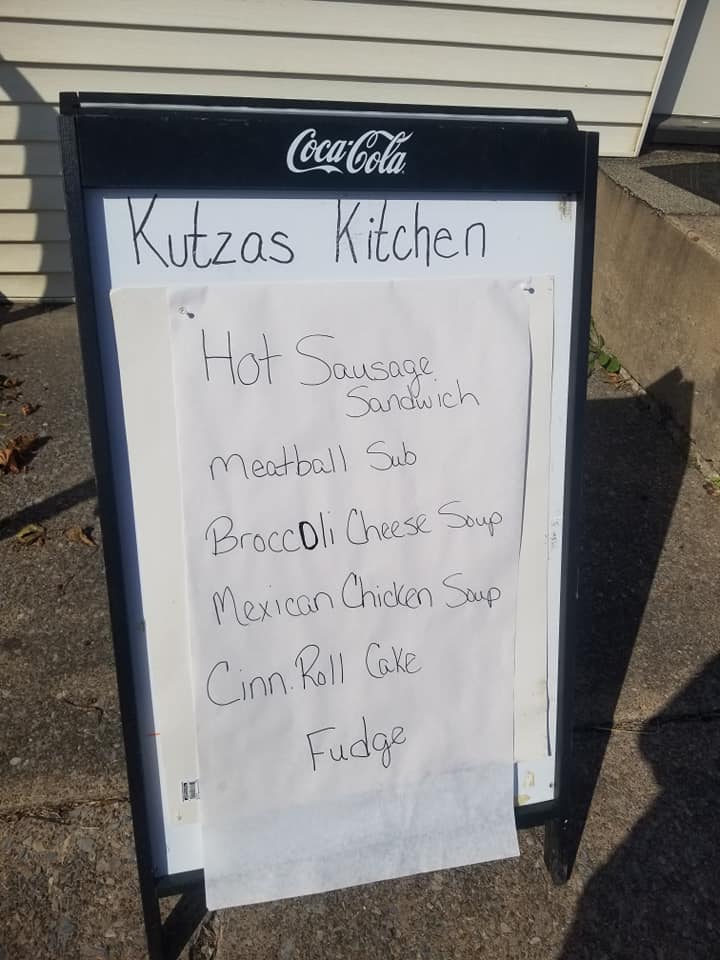 Coca-Cola
Kutzas Kitchen
Hot Sausage
Sandwich
Meatball Sub
Broccoli Cheese Soup
Mexican Chicken Soup
Cinn. Roll Cake
Fudge